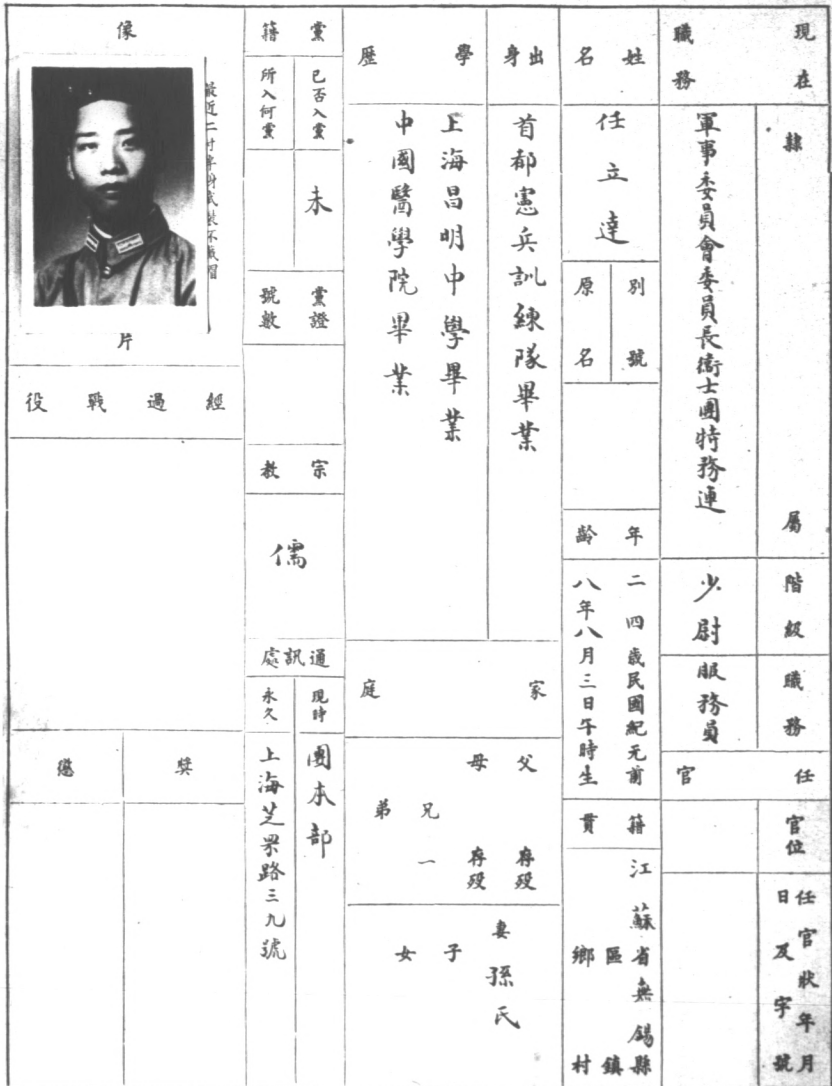 現在職務
隸屬
軍事委員會委員長衛士團特務連
階級
少尉
職務
服務員
任官
官位
任官狀年月日及字號
姓名
任立達
別號
原名
年齡
二四歲民國紀元前
八年八月三日午時生
籍貫
江蘇省無錫縣
區鎮
鄉村
出身
首都憲兵訓練隊畢業
學歷
上海昌明中學畢業
中國醫學院畢業
家庭
父 存歿
母 存歿
兄 一
弟
妻 孫氏
子
女
黨籍
已否入黨
未
所入何黨
黨證號數
宗教
儒
通訊處
現時
團本部
永久
上海芝罘路三九號
像片
最近二寸半身武裝不戴帽
經過戰役
獎
懲